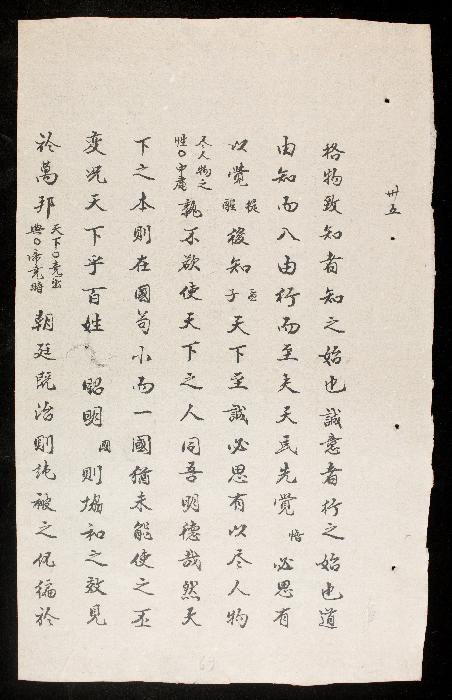 卅五
格物致知者知之始也誠意者行之始也道
由知而入由行而至矣天民先覺悟必思有
以覺提醒後知孟子天下至誠必思有以尽人物
尽人物之性〇中庸孰不欲使天下之人同吾明德哉然天
下之本則在國苟小而一國猶未能使之丕
变况天下乎百姓昭明國則協和之效見
於萬邦天下〇堯典〇帝堯時朝廷既治則詵被之化徧於